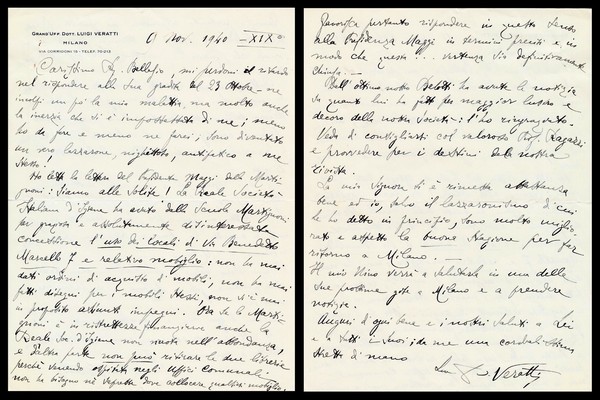 GRAND'UFF. DOTT. LUIGI VERATTI
MILANO
VIA CORRIDONI 19 - TELEF. 70-213
6 Nov. 1940 - XIXº
Carissimo Bellofio, mi perdoni il ritardo
nel rispondere alla Sua gradita del 23 Ottobre - ne
incolpi un po' la mia malattia, ma molto anche
la inerzia che si è impossessata di me; meno
ho da fare e meno ne farei; sono diventato
un vero lazzarone, antipatico a me
stesso!
Ho letto la lettera del Presidente Maggi della Marti-
gnoni: siamo alle solite! La Reale Società
Italiana d'Igiene ha avuto dalla Scuola Martignoni
per proposta e assolutamente disinteressata
concessione l'uso dei locali di Via Benedetto
Marcello 7 e relativo mobiglio: non ha mai
dati ordini di acquisto di mobili, non ha mai
fatti disegni per i mobili stessi, non si è mai
in proposito assunti impegni. Ora se la Marti-
gnoni è in ristrettezze finanziarie anche la
Reale Soc. d'Igiene non nuota nell'abbondanza,
e d'altra parte non può ritirare le due librerie
perchè venendo ospitata negli Uffici Comunali
non ha bisogno nè saprebbe dove collocare qualsiasi mobiglio.
Favorisca pertanto rispondere in questo senso
alla Presidenza Maggi in termini precisi e in
modo che questa vertenza sia definitivamente
chiusa. -
Dall'ottimo nostro Belotti ho avuto la notizia
di quanto Lui ha fatto per maggior lustro e
decoro della nostra Società: l'ho ringraziato.
Veda di consigliarsi col valoroso Prof. Ragazzi
e provvedere per i destini della nostra
rivista.
La mia Signora si è rimessa abbastanza
bene ed io, salvo il lazzaronismo di cui
Le ho detto in principio, sono molto miglio-
rato e aspetto la buona stagione per far
ritorno a Milano. -
Il mio Nino verrà a salutarla in una delle
sue prossime gite a Milano e a prendere
notizie.
Auguri d'ogni bene e i nostri saluti a Lei
e a tutti i suoi; da me una cordiale
stretta di mano
Veratti